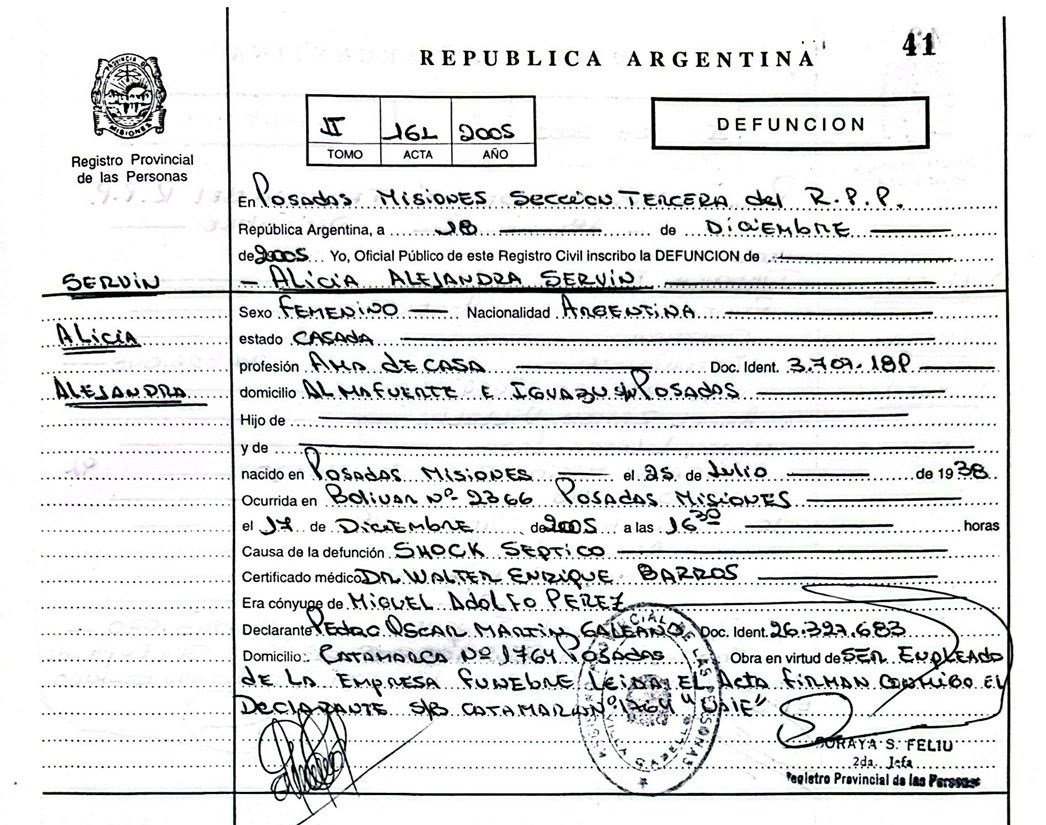 41
REPUBLICA ARGENTINA
PROVINCIA DE MISIONES
Registro Provincial
de las Personas
II 161 2005
TOMO ACTA AÑO
DEFUNCION
En Posadas Misiones Seccion Tercera del R.P.P.
República Argentina, a 18 de Diciembre
de 2005 Yo, Oficial Público de este Registro Civil inscribo la DEFUNCION de
SERVIN
- ALICIA ALEJANDRA SERVIN
ALICIA
ALEJANDRA
Sexo FEMENINO Nacionalidad ARGENTINA
estado CASADA
profesión AMA de CASA Doc. Ident.
domicilio ALMAFUERTE E IGUAZU S/N POSADAS
Hijo de
y de
nacido en Posadas Misiones el 25 de Julio de 1938
Ocurrida en Bolivar Nº 2366 Posadas Misiones
el 17 de Diciembre de 2005 a las 16 30 horas
Causa de la defunción SHOCK SEPTICO
Certificado médico DR. WALTER ENRIQUE BARROS
Era cónyuge de MIGUEL ADOLFO PEREZ
Declarante PEDRO OSCAR MARTIN GALEANO Doc. Ident. 26.327.683
Domicilio: CATAMARCA Nº 1764 Posadas Obra en virtud de SER EMPLEADO
de LA EMPRESA FUNEBRE LEIDA EL Acta FIRMAN CONMIGO EL
DECLARANTE S/B CATAMARCA Nº 1764 "VALE"
SORAYA S. FELIU
2da. Jefa
Registro Provincial de las Personas